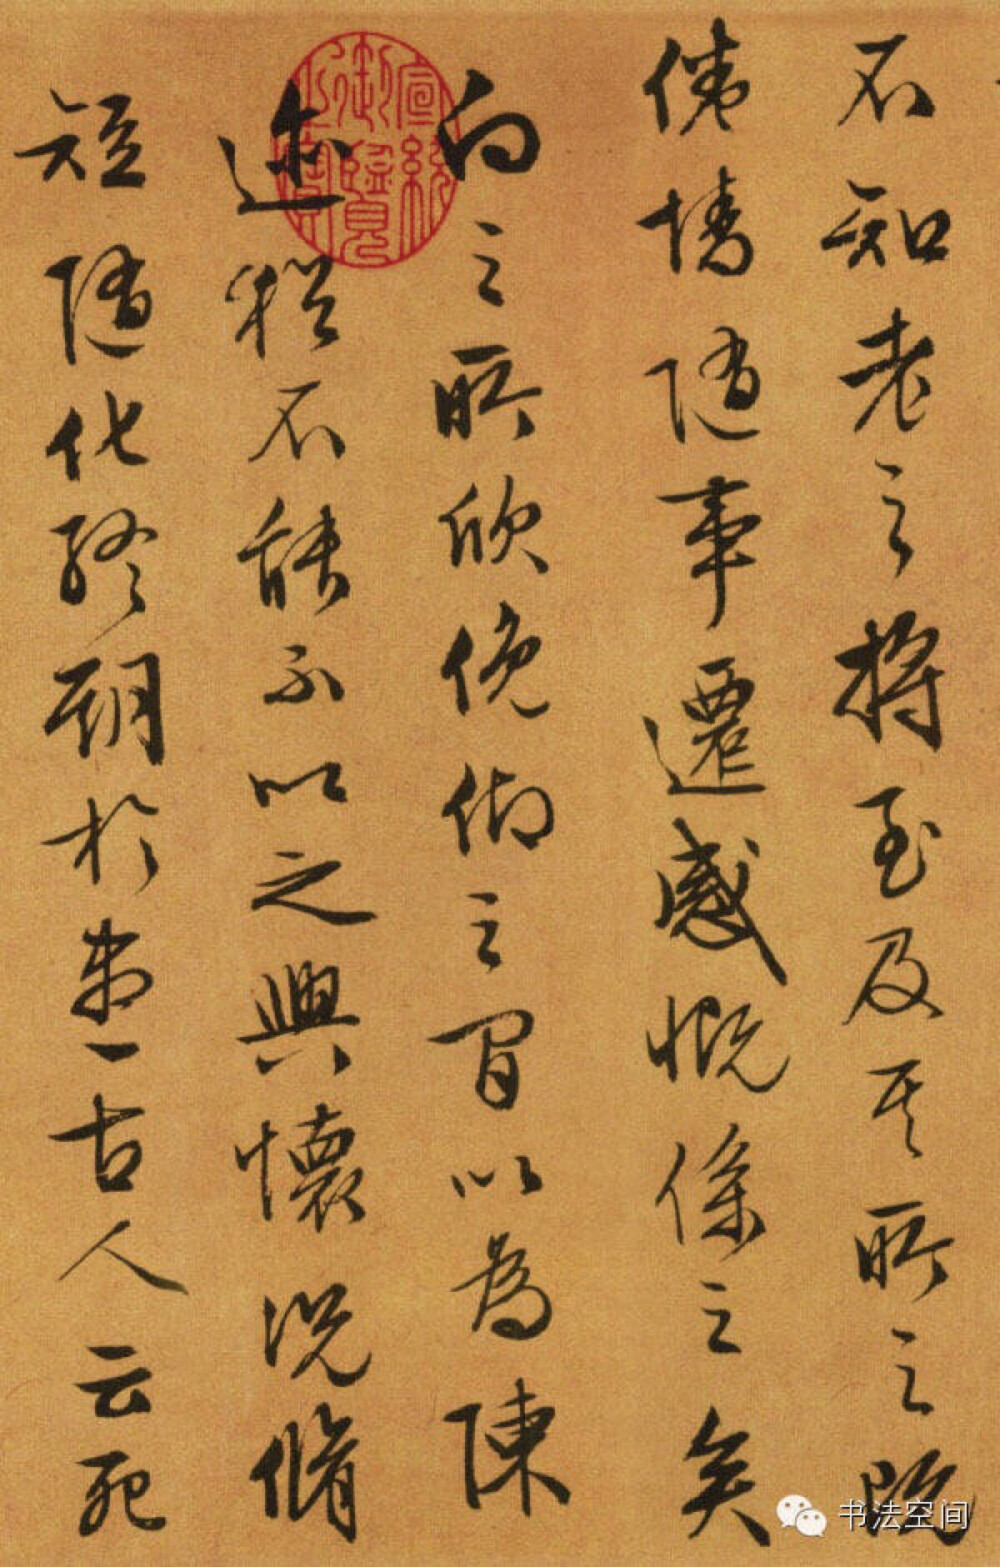 不知老之將至及其所之既
倦情隨事遷感慨係之矣
向之所欣俛仰之間以為陳
迹猶不能不以之興懷況脩
短隨化終期於盡古人云死
宣統御覽之寶
书法空间